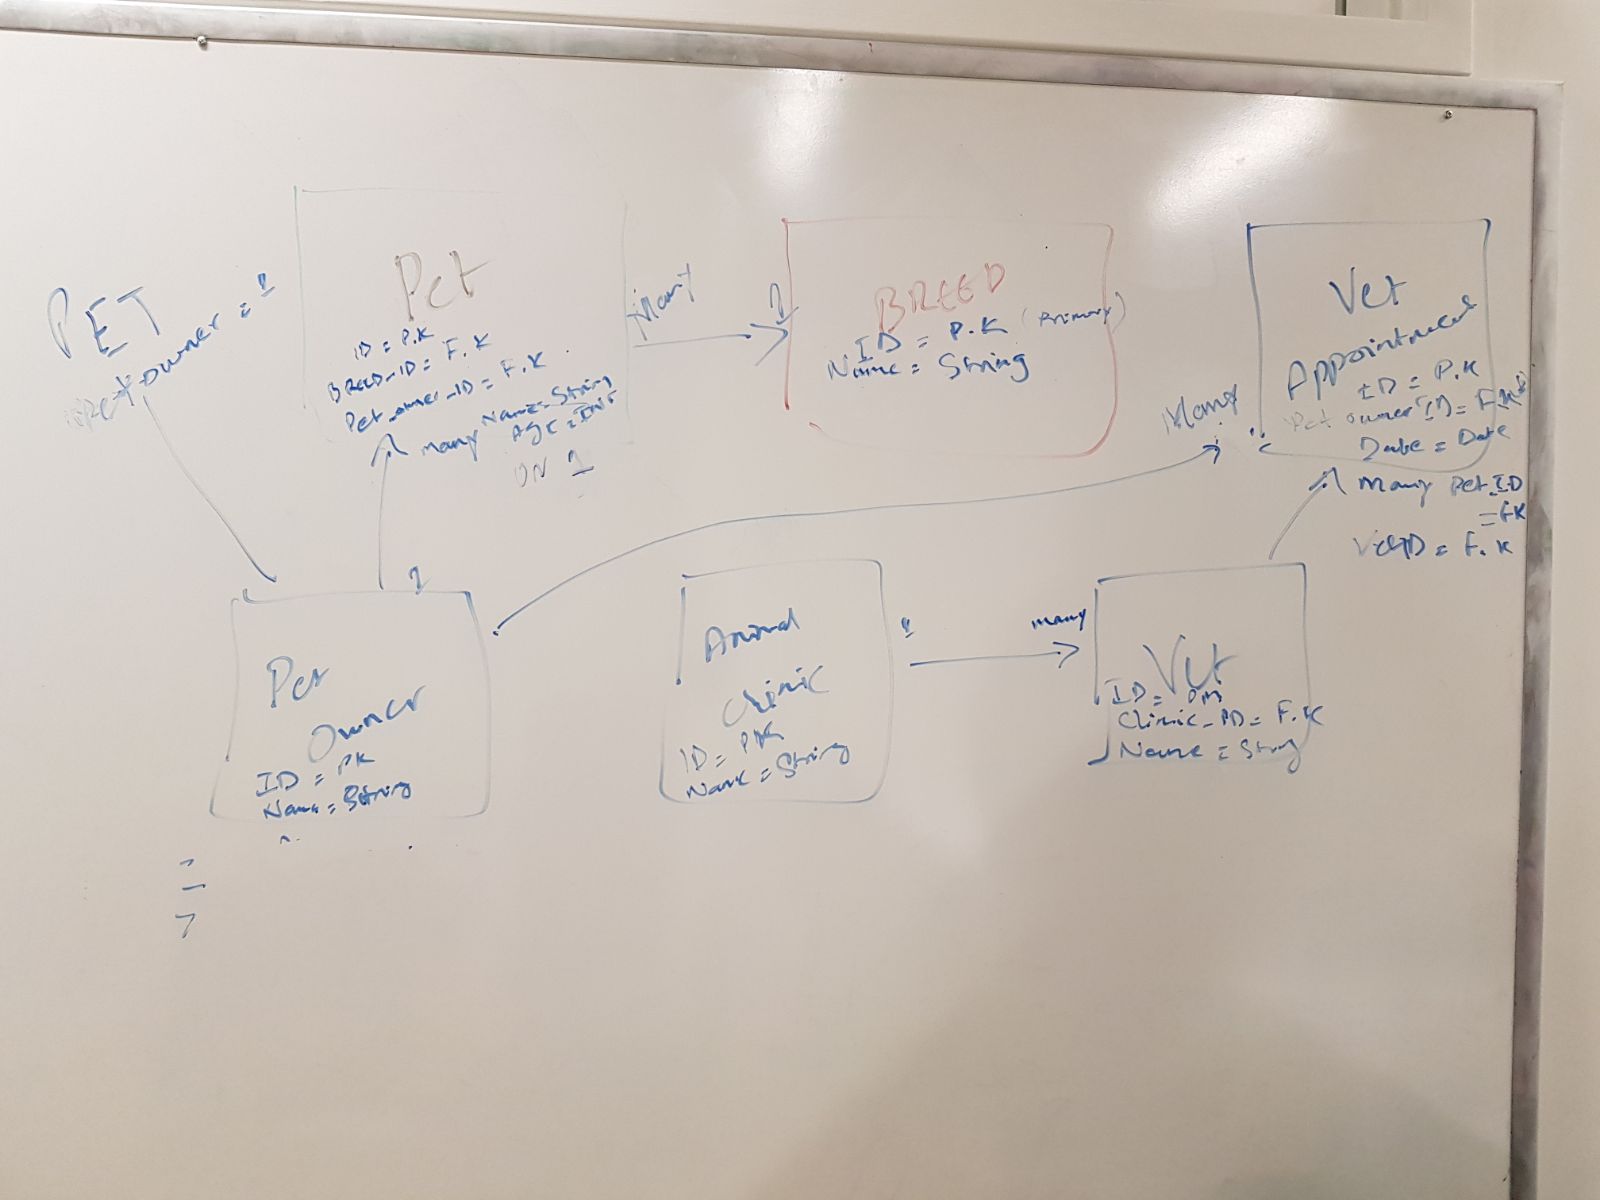 PET
owner = 1
Pet
ID = P.K
BREED_ID = F.K
Pet_owner_ID = F.K
Name = String
Age = INT
many
ON 1
Many
1
BREED
ID = P.K (Primary)
Name = String
Many
Vet
Appointment
ID = P.K
Pet owner ID =
Date = Date
Many Pet_ID
= FK
Vet ID = F.K
1
Pet
Owner
ID = PK
Name = String
Animal
Clinic
ID = PK
Name = String
1
many
Vet
ID =
Clinic_ID = F.K
Name = String